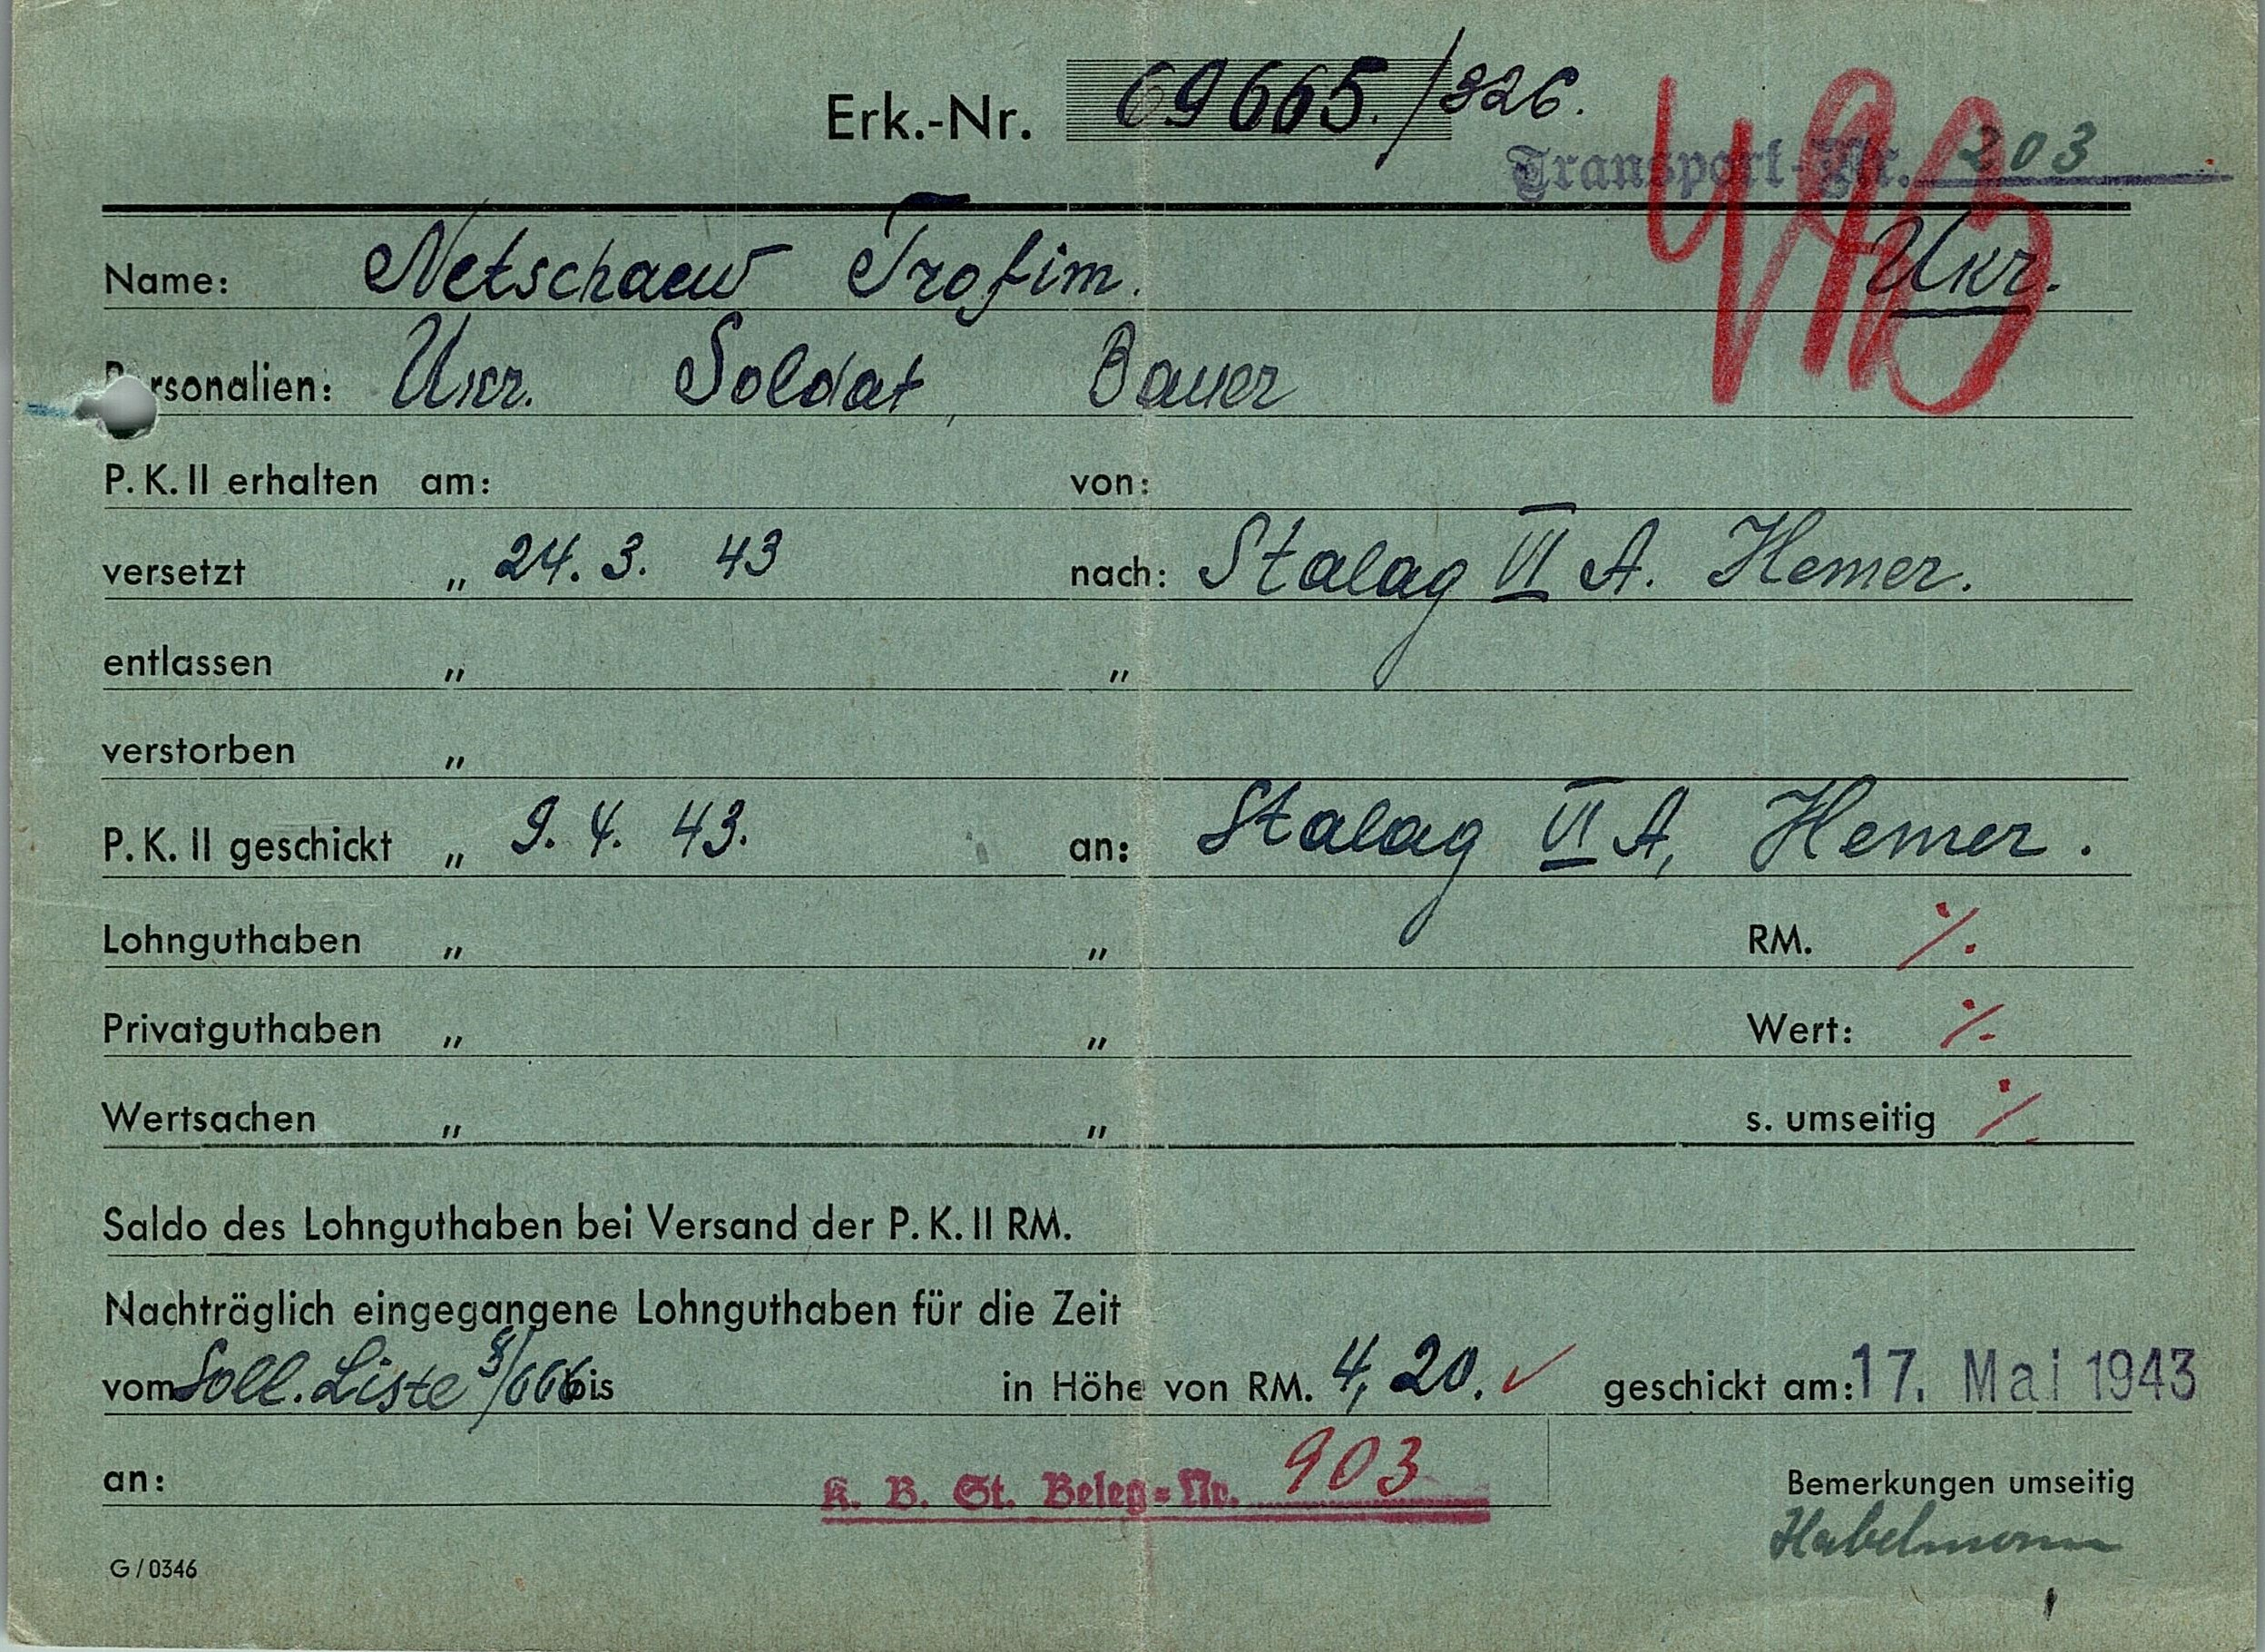 Erk.-Nr. 69665./326.
Transport-Nr. 203
Name: Netschaew Trofim. Ukr.
Personalien: Ukr. Soldat, Bauer
P. K. II erhalten am: von:
versetzt „ 24. 3. 43 nach: Stalag VI A. Hemer.
entlassen „ „
verstorben „
P. K. II geschickt „ 9. 4. 43. an: Stalag VI A, Hemer.
Lohnguthaben „ „ RM. ⁒
Privatguthaben „ „ Wert: ⁒
Wertsachen „ „ s. umseitig ⁒
Saldo des Lohnguthaben bei Versand der P. K. II RM.
Nachträglich eingegangene Lohnguthaben für die Zeit
vom Soll. Liste bis in Höhe von RM. 4,20. ✓ geschickt am: 17. Mai 1943
an: K. B. St. Beleg=Nr. 903 Bemerkungen umseitig
Habelmann
G/0346